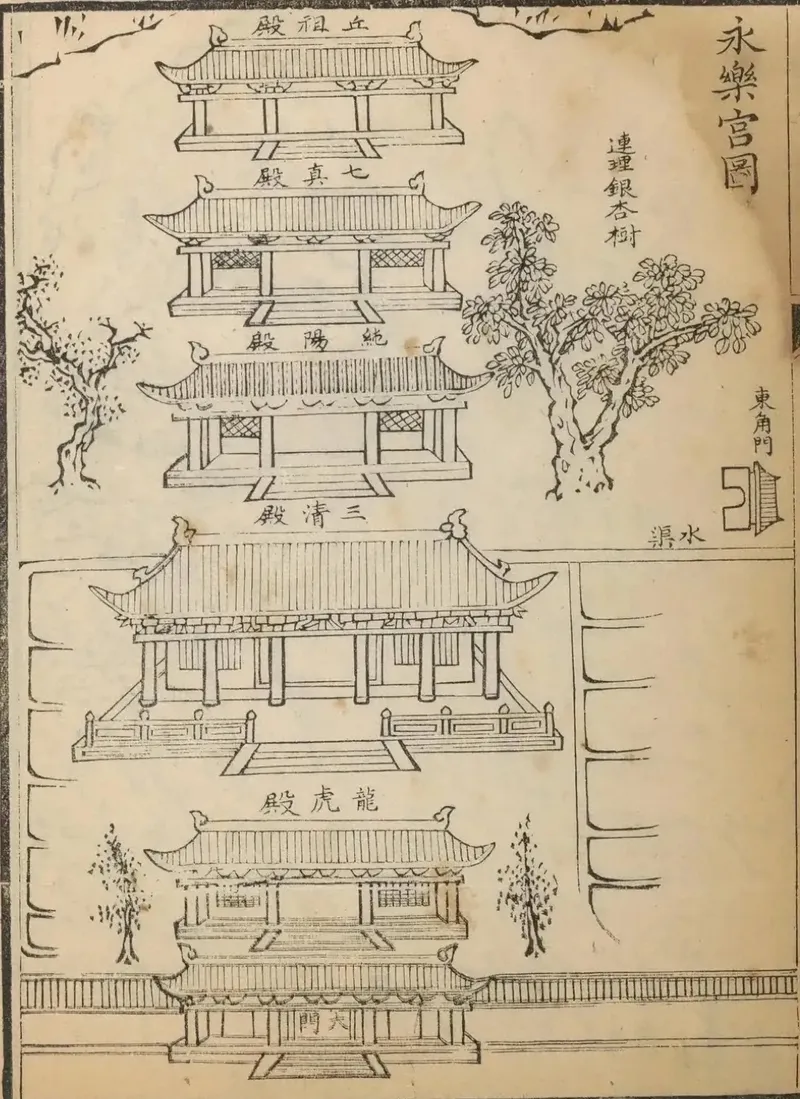 永樂宮圖
連理銀杏樹
東角門
水渠
丘祖殿
七真殿
純陽殿
三清殿
龍虎殿
大門